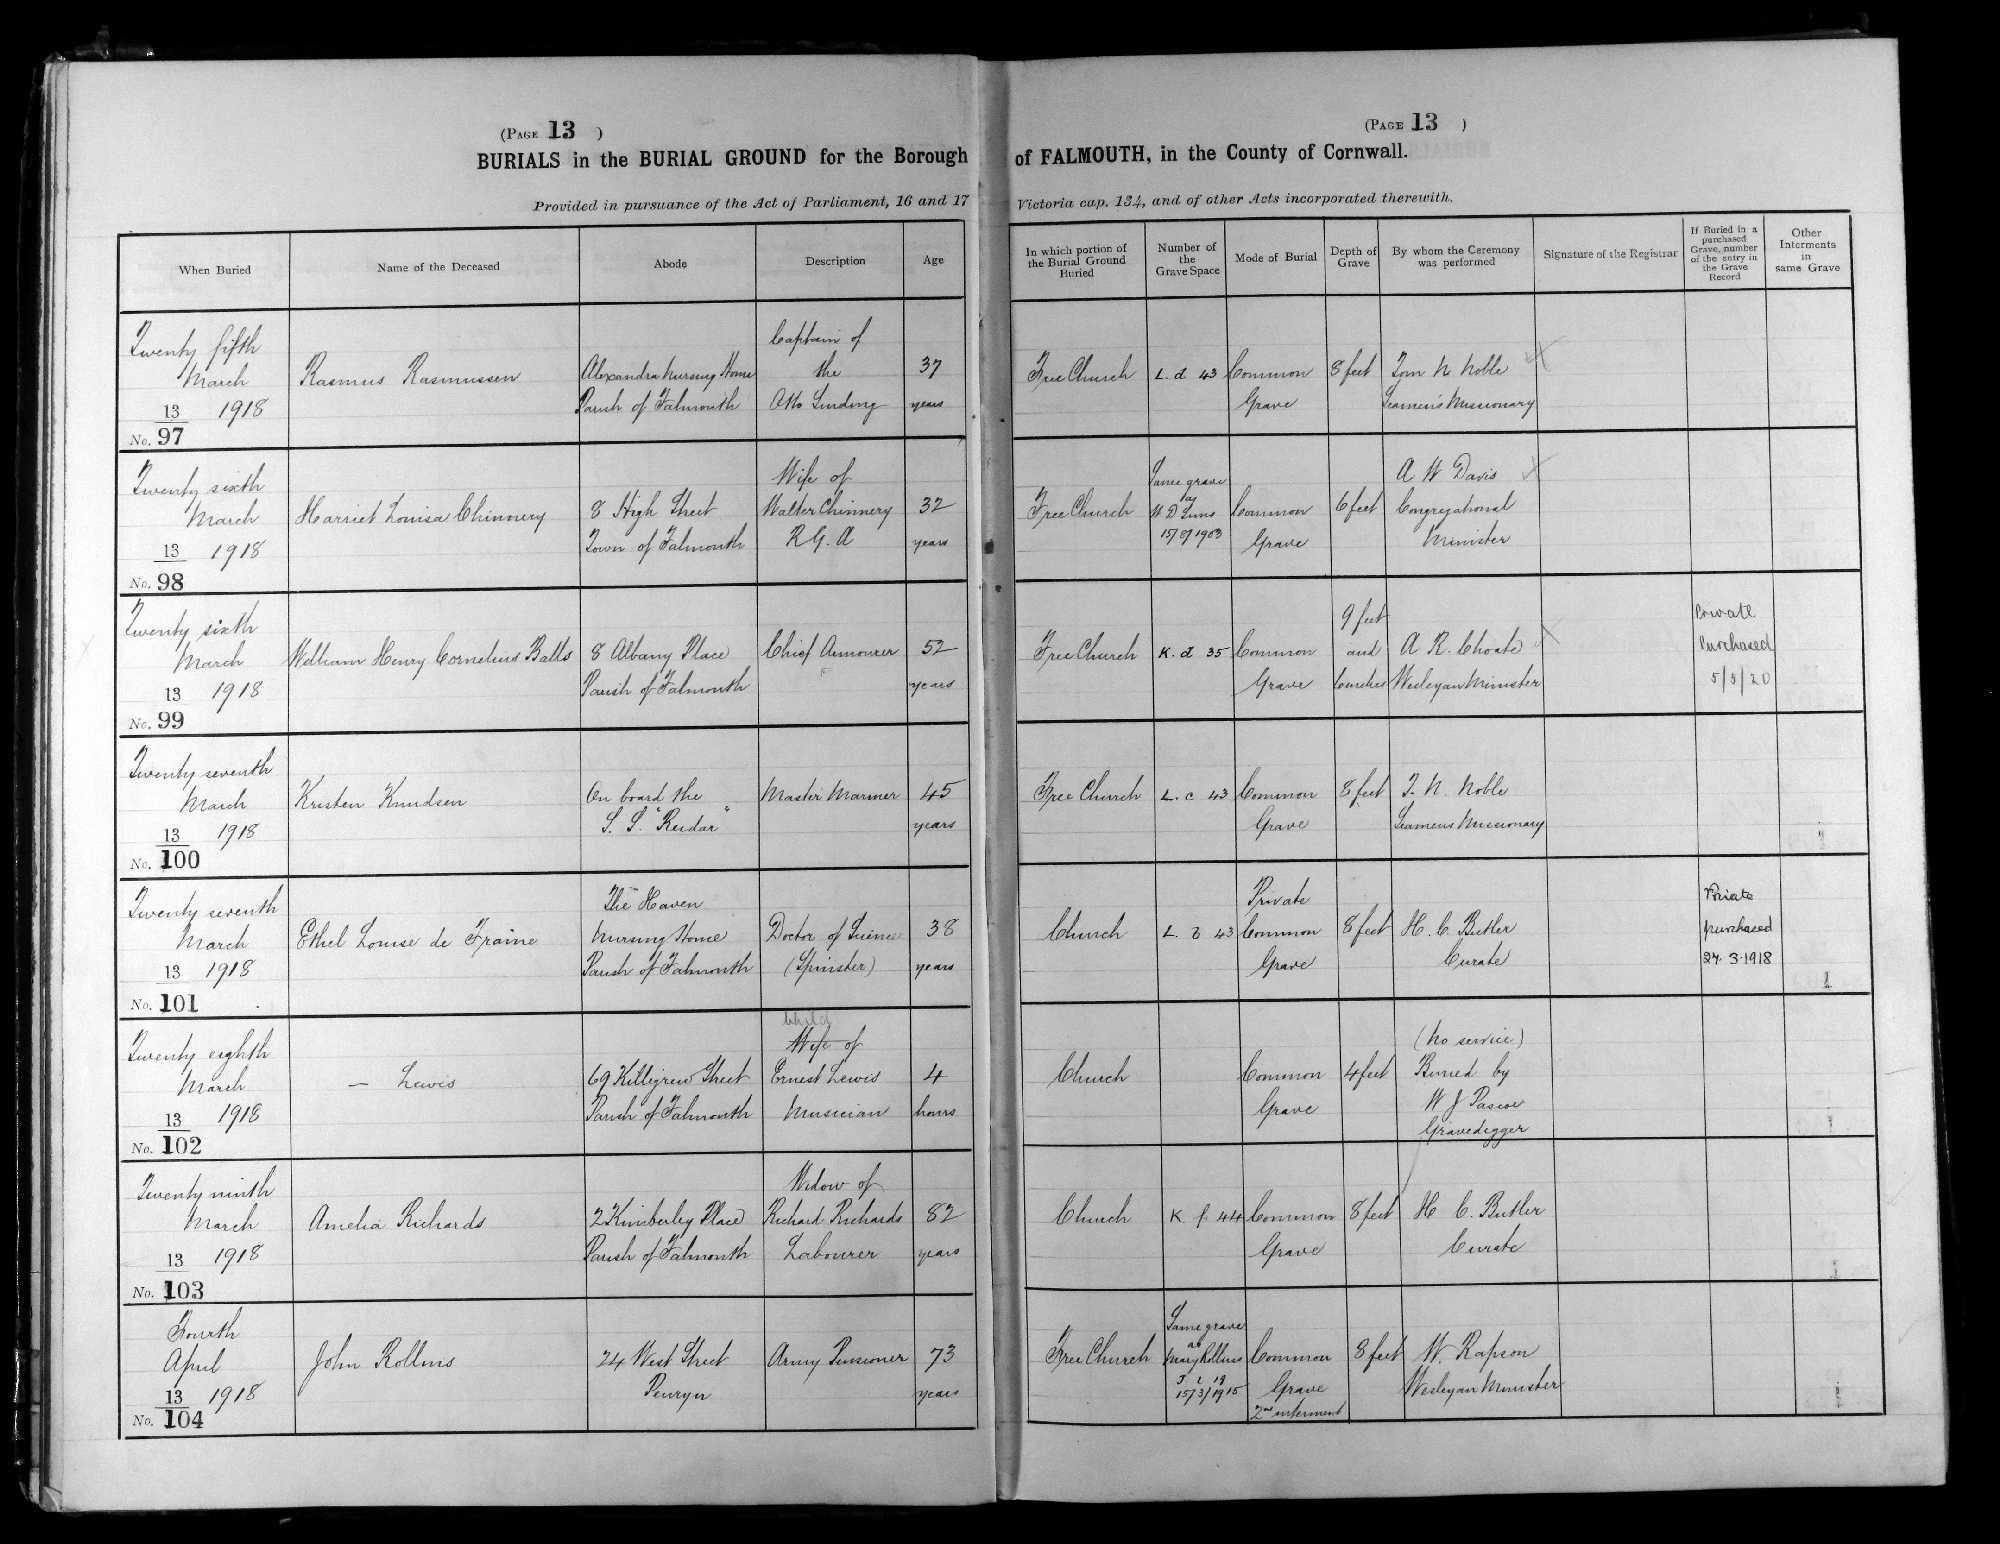 (PAGE 13 )
BURIALS in the BURIAL GROUND for the Borough
Provided in pursuance of the Act of Parliament, 16 and 17
When Buried
Name of the Deceased
Abode
Description
Age
Twenty fifth
March
13 1918
No. 97
Rasmus Rasmussen
Alexandra Nursing Home
Parish of Falmouth
Captain of
the
Otto Sinding
37
years
Twenty sixth
March
13 1918
No. 98
Harriet Louisa Chinnery
8 High Street
Town of Falmouth
Wife of
Walter Chinnery
R.G.A
32
years
Twenty sixth
March
13 1918
No. 99
William Henry Cornelius Balls
8 Albany Place
Parish of Falmouth
Chief Armourer
52
years
Twenty seventh
March
13 1918
No. 100
Kristen Knudsen
On board the
S. S. "Reidar"
Master Mariner
45
years
Twenty seventh
March
13 1918
No. 101
Ethel Louise de Fraine
The Haven
Nursing Home
Parish of Falmouth
Doctor of Science
(Spinster)
38
years
Twenty eighth
March
13 1918
No. 102
— Lewis
69 Killigrew Street
Parish of Falmouth
Child
Wife of
Ernest Lewis
Musician
4
hours
Twenty ninth
March
13 1918
No. 103
Amelia Richards
2 Kimberley Place
Parish of Falmouth
Widow of
Richard Richards
Labourer
82
years
Fourth
April
13 1918
No. 104
John Rollins
24 West Street
Penryn
Army Pensioner
73
years
(PAGE 13 )
of FALMOUTH, in the County of Cornwall.
Victoria cap. 134, and of other Acts incorporated therewith.
In which portion of
the Burial Ground
Buried
Number of
the
Grave Space
Mode of Burial
Depth of
Grave
By whom the Ceremony
was performed
Signature of the Registrar
If Buried in a
purchased
Grave, number
of the entry in
the Grave
Record
Other
Interments
in
same Grave
Free Church
L. d 43
Common
Grave
8 feet
Tom N Noble
Seamen's Missionary
Free Church
Same grave
as
W D
Common
Grave
6 feet
A W Davis
Congregational
Minister
Free Church
K. d 35
Common
Grave
9 feet
and
6 inches
A. R. Choate
Wesleyan Minister
Private
Purchased
5/5/20
Free Church
L. c 43
Common
Grave
8 feet
T. N. Noble
Seamens Missionary
Church
L. b 43
Private
Common
Grave
8 feet
H. C. Butler
Curate
Private
purchased
27. 3. 1918
1
Church
Common
Grave
4 feet
(No service)
Buried by
W J Pascoe
Gravedigger
Church
K. f. 44
Common
Grave
8 feet
H C. Butler
Curate
Free Church
Same grave
as
Mary Rollins
15/3/1915
Common
Grave
2nd interment
8 feet
W. Rapson
Wesleyan Minister